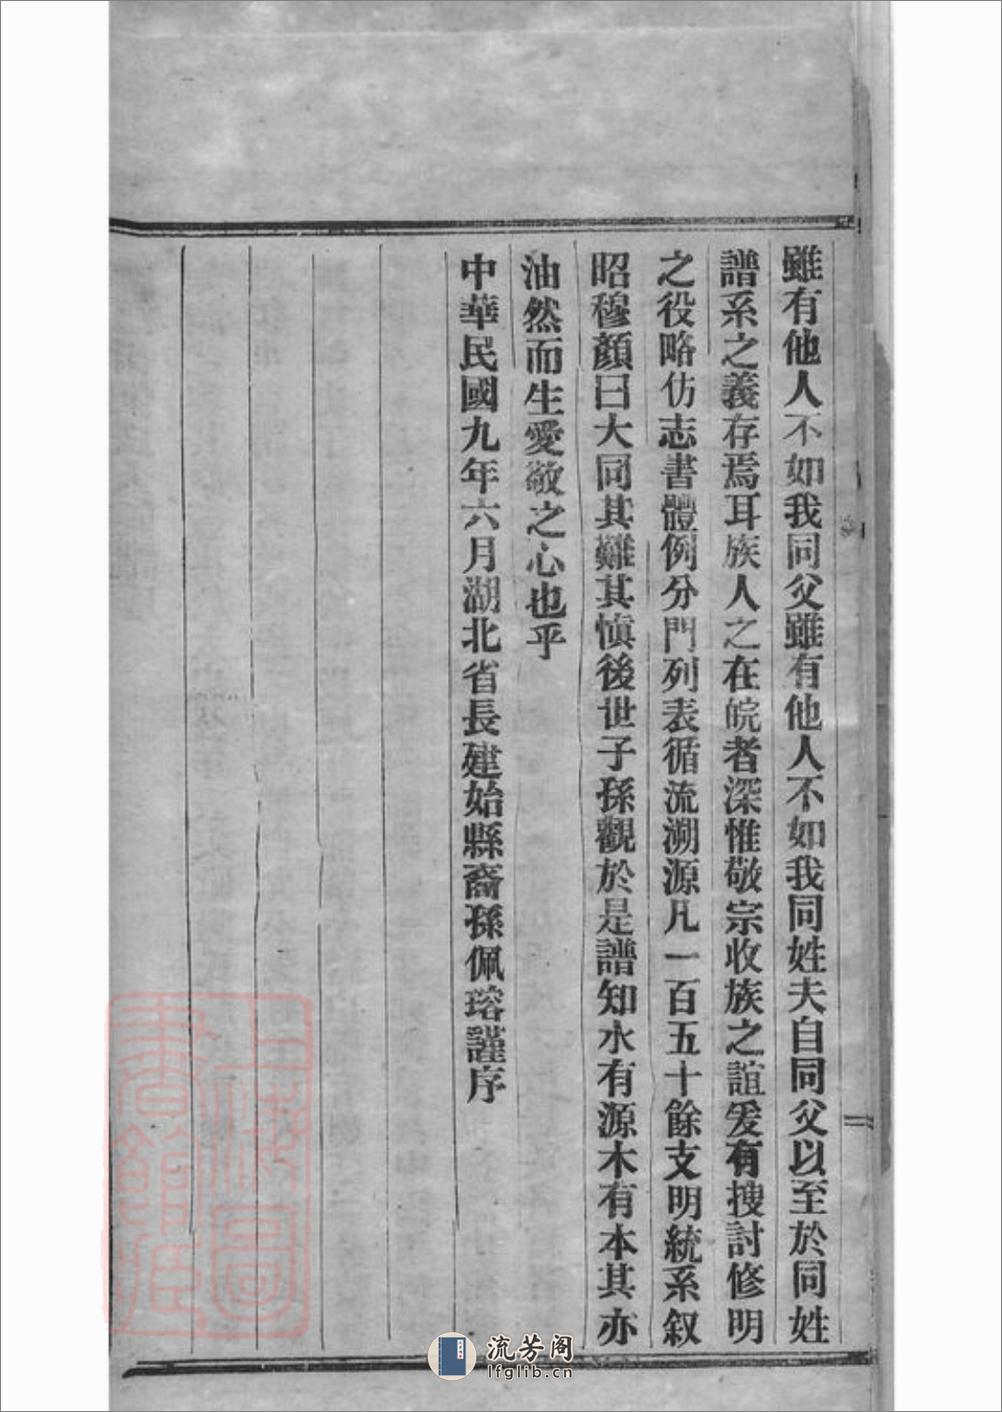 雖有他人不如我同父雖有他人不如我同姓夫自同父以至於同姓
譜系之義存焉耳族人之在皖者深惟敬宗收族之誼爰有搜討修明
之役略仿志書體例分門列表循流溯源凡一百五十餘支明統系叙
昭穆顏曰大同其難其慎後世子孫觀於是譜知水有源木有本其亦
油然而生愛敬之心也乎
中華民國九年六月湖北省長建始縣裔孫佩瑢謹序
上海圖
書館藏
流芳阁
lfglib.cn